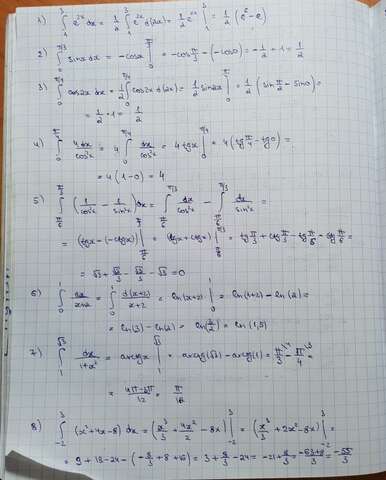 1) ∫₁³ e^{2x} dx = 1/2 ∫₁³ e^{2x} d(2x) = 1/2 e^{2x} |₁³ = 1/2 (e⁶ - e)
2) ∫₀^{π/3} sinx dx = -cosx |₀^{π/3} = -cos π/3 - (-cos0) = -1/2 + 1 = 1/2
3) ∫₀^{π/4} cos2x dx = 1/2 ∫₀^{π/4} cos2x d(2x) = 1/2 sin2x |₀^{π/4} = 1/2 (sin π/2 - sin0) =
= 1/2 · 1 = 1/2
4) ∫₀^{π/4} 4dx/cos²x = 4 ∫₀^{π/4} dx/cos²x = 4 tgx |₀^{π/4} = 4 (tg π/4 - tg0) =
= 4 (1-0) = 4
5) ∫_{π/6}^{π/3} (1/cos²x - 1/sin²x) dx = ∫_{π/6}^{π/3} dx/cos²x - ∫_{π/6}^{π/3} dx/sin²x =
= (tgx - (-ctgx)) |_{π/6}^{π/3} = (tgx + ctgx) |_{π/6}^{π/3} = tg π/3 + ctg π/3 - tg π/6 - ctg π/6 =
= √3 + √3/3 - √3/3 - √3 = 0
6) ∫₀¹ dx/x+2 = ∫₀¹ d(x+2)/x+2 = ln(x+2) |₀¹ = ln(1+2) - ln(2) =
= ln(3) - ln(2) = ln(3/2) = ln(1,5)
7) ∫₁^{√3} dx/1+x² = arctgx |₁^{√3} = arctg(√3) - arctg(1) = π/3 - π/4 =
= 4π-3π/12 = π/12
8) ∫₋₂³ (x²+4x-8) dx = (x³/3 + 4x²/2 - 8x) |₋₂³ = (x³/3 + 2x² - 8x) |₋₂³ =
= 9 + 18 - 24 - (-8/3 + 8 + 16) = 3 + 8/3 - 24 = -21 + 8/3 = -63+8/3 = -55/3